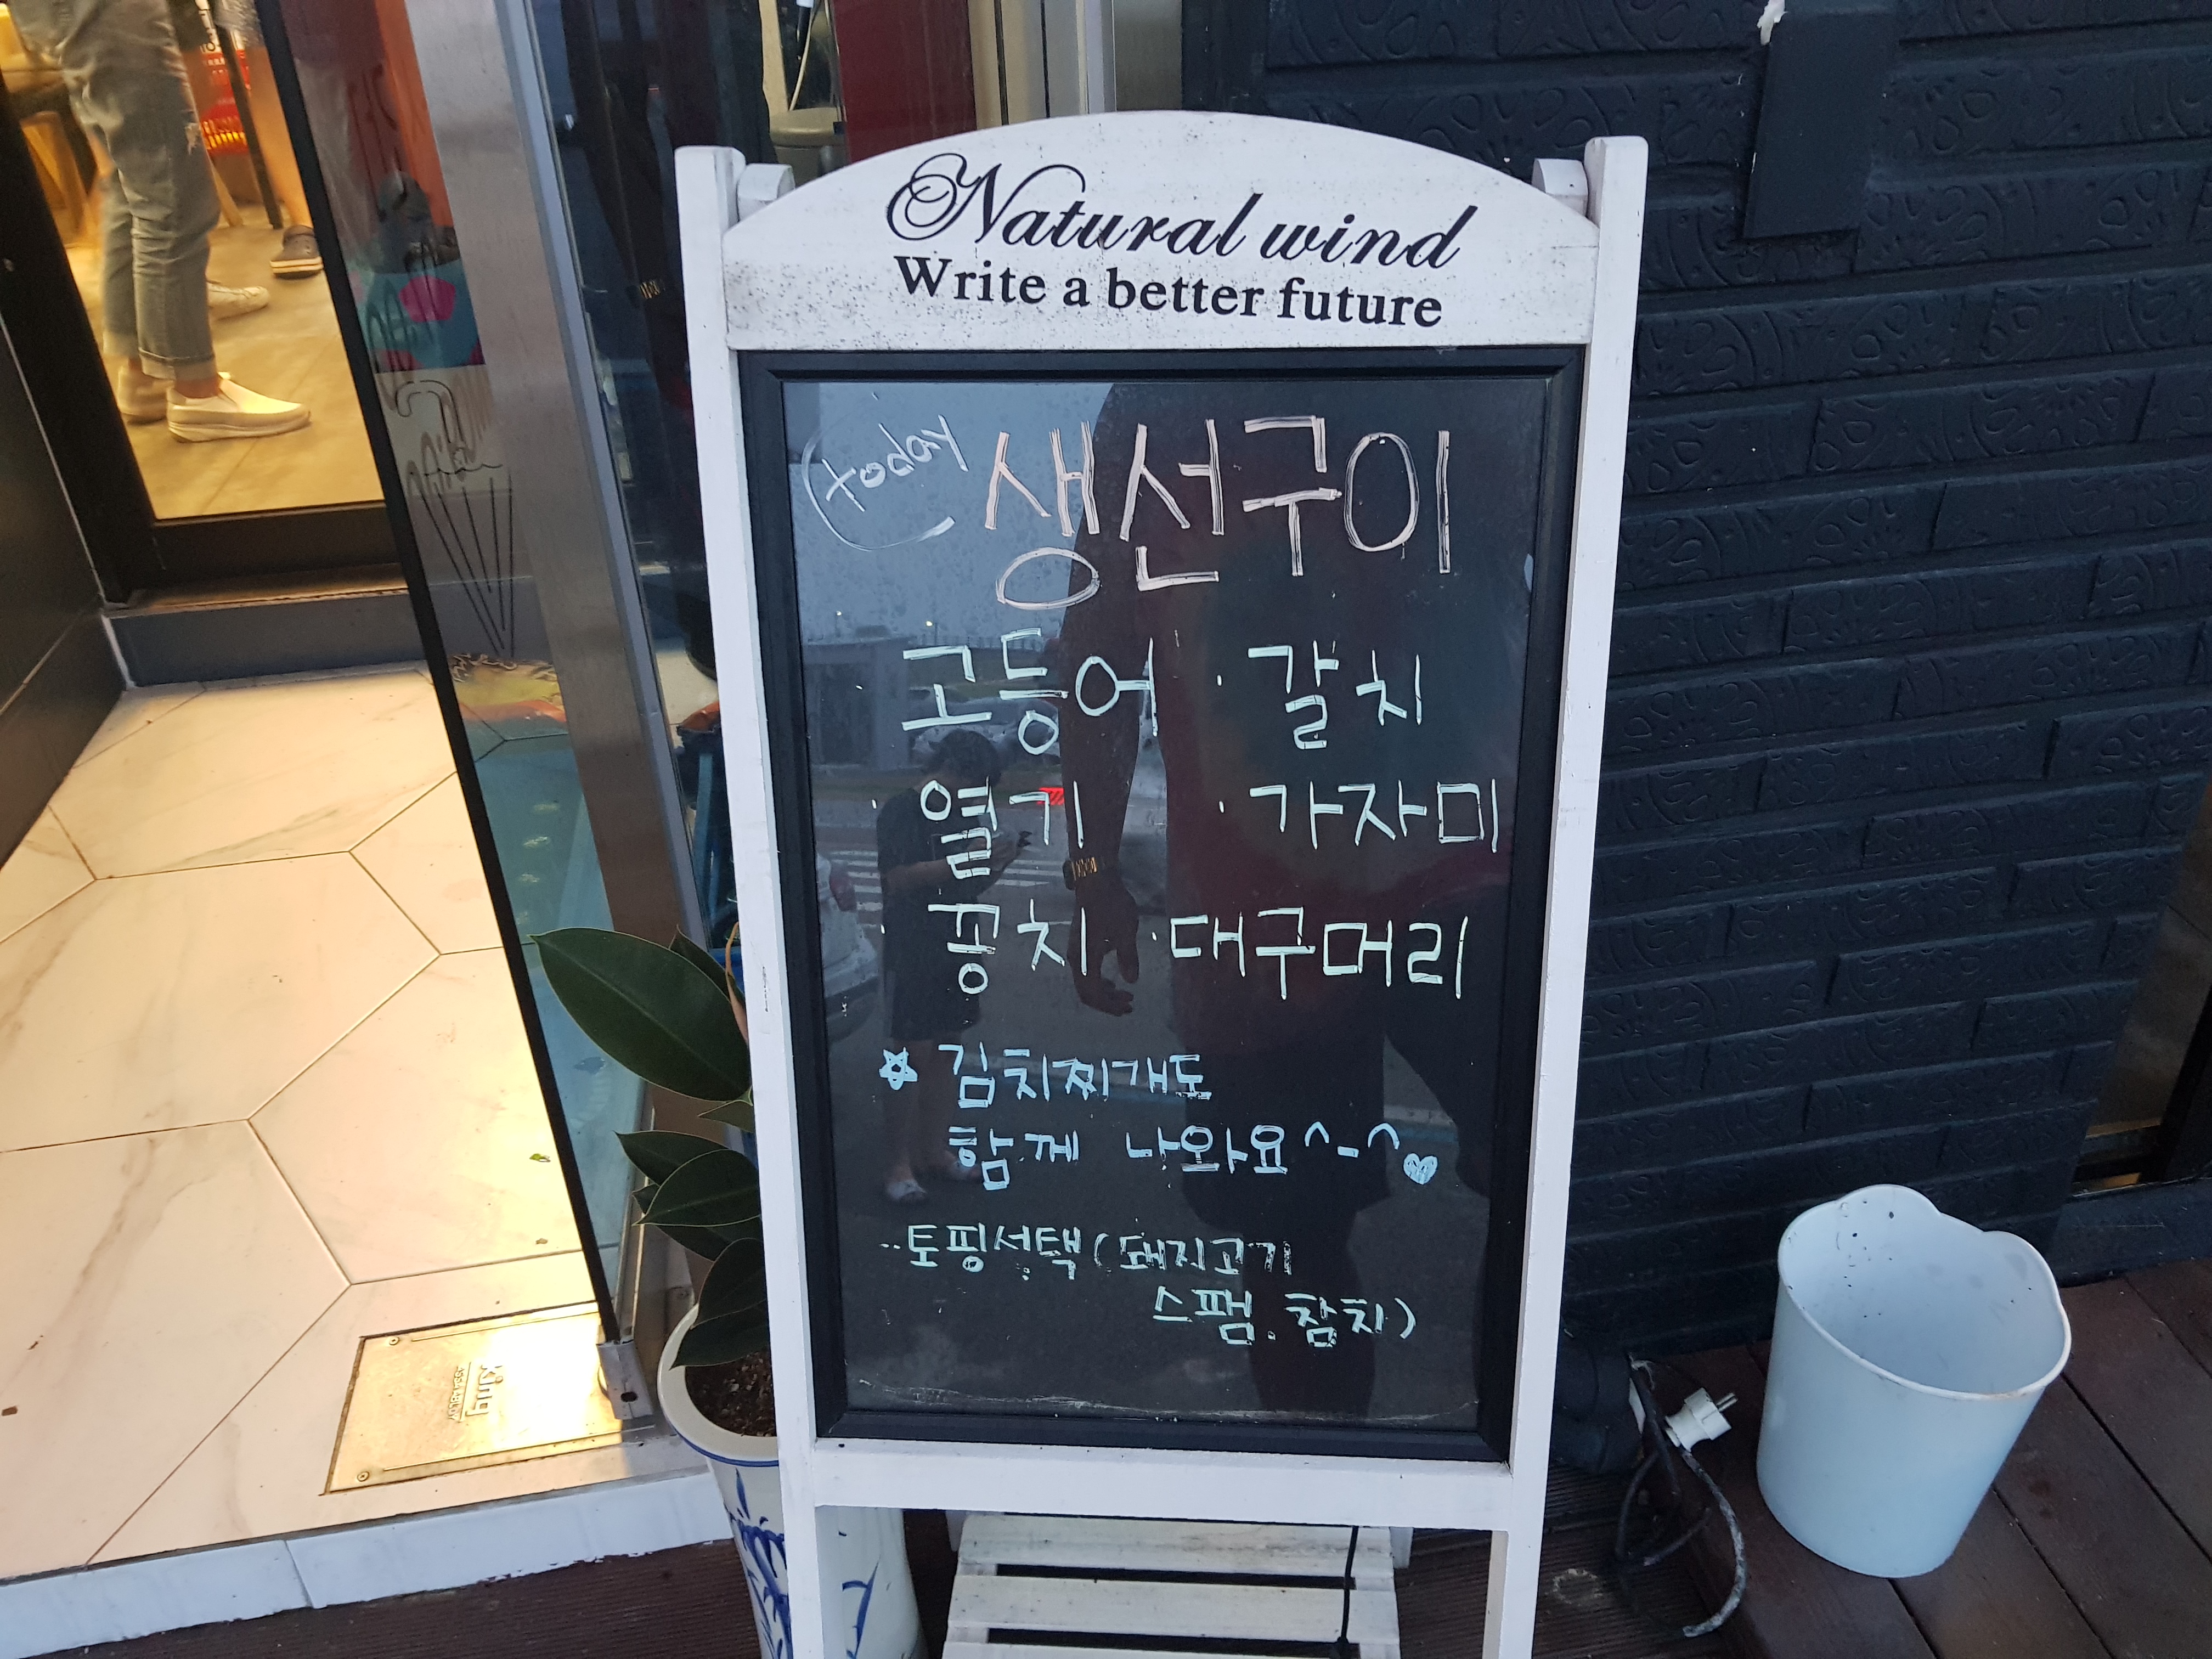 Natural wind
Write a better future
today 생선구이
· 고등어 · 갈치
· 열기 · 가자미
· 꽁치 · 대구머리
☆ 김치찌개도
함께 나와요^-^♥
·· 토핑선택(돼지고기
스팸. 참치)
king